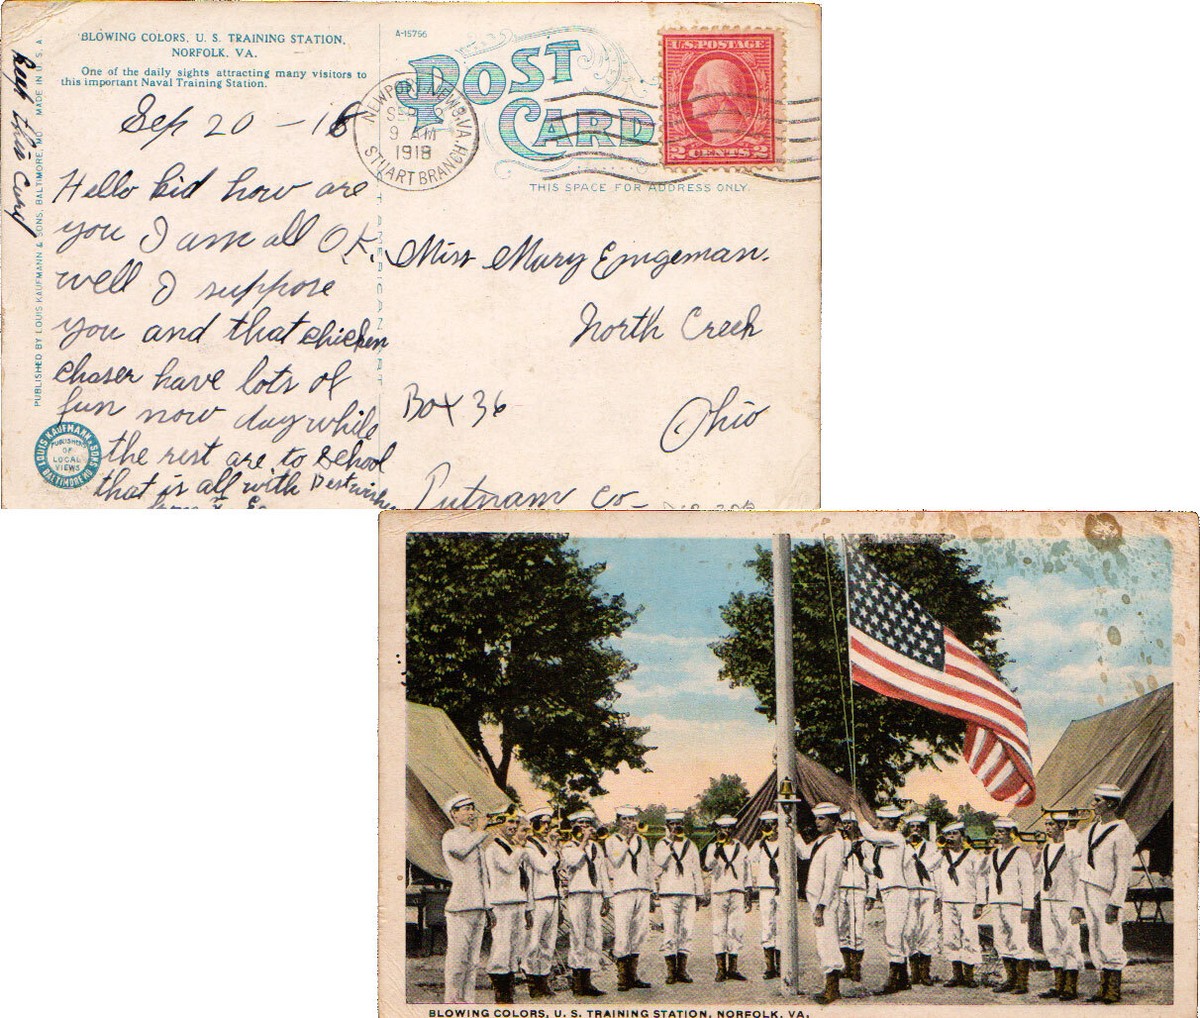 BLOWING COLORS, U. S. TRAINING STATION,
NORFOLK, VA.
One of the daily sights attracting many visitors to
this important Naval Training Station.
A-15756
POST
CARD
U.S. POSTAGE
2 CENTS 2
NEWPORT NEWS, VA.
SEP
9 AM
1918
STUART BRANCH
THIS SPACE FOR ADDRESS ONLY.
Keep this Card
PUBLISHED BY LOUIS KAUFMANN & SONS, BALTIMORE, MD. MADE IN U. S. A.
AMERICAN ART
Sep 20 - 18
Hello kid how are
you I am all O.K.
well I suppose
you and that chicken
chaser have lots of
fun now day while
the rest are to school
that is all with Best wishes
LOUIS KAUFMANN & SONS
BALTIMORE MD.
PUBLISHERS
OF
LOCAL
VIEWS
Miss Mary Emgeman.
North Creek
Box 36
Ohio
Putnam Co-
BLOWING COLORS, U. S. TRAINING STATION, NORFOLK, VA.